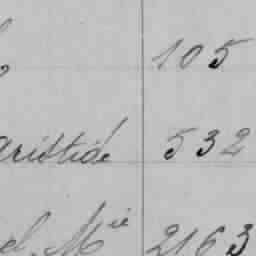 105
Aristide 532
el. Mie 2163